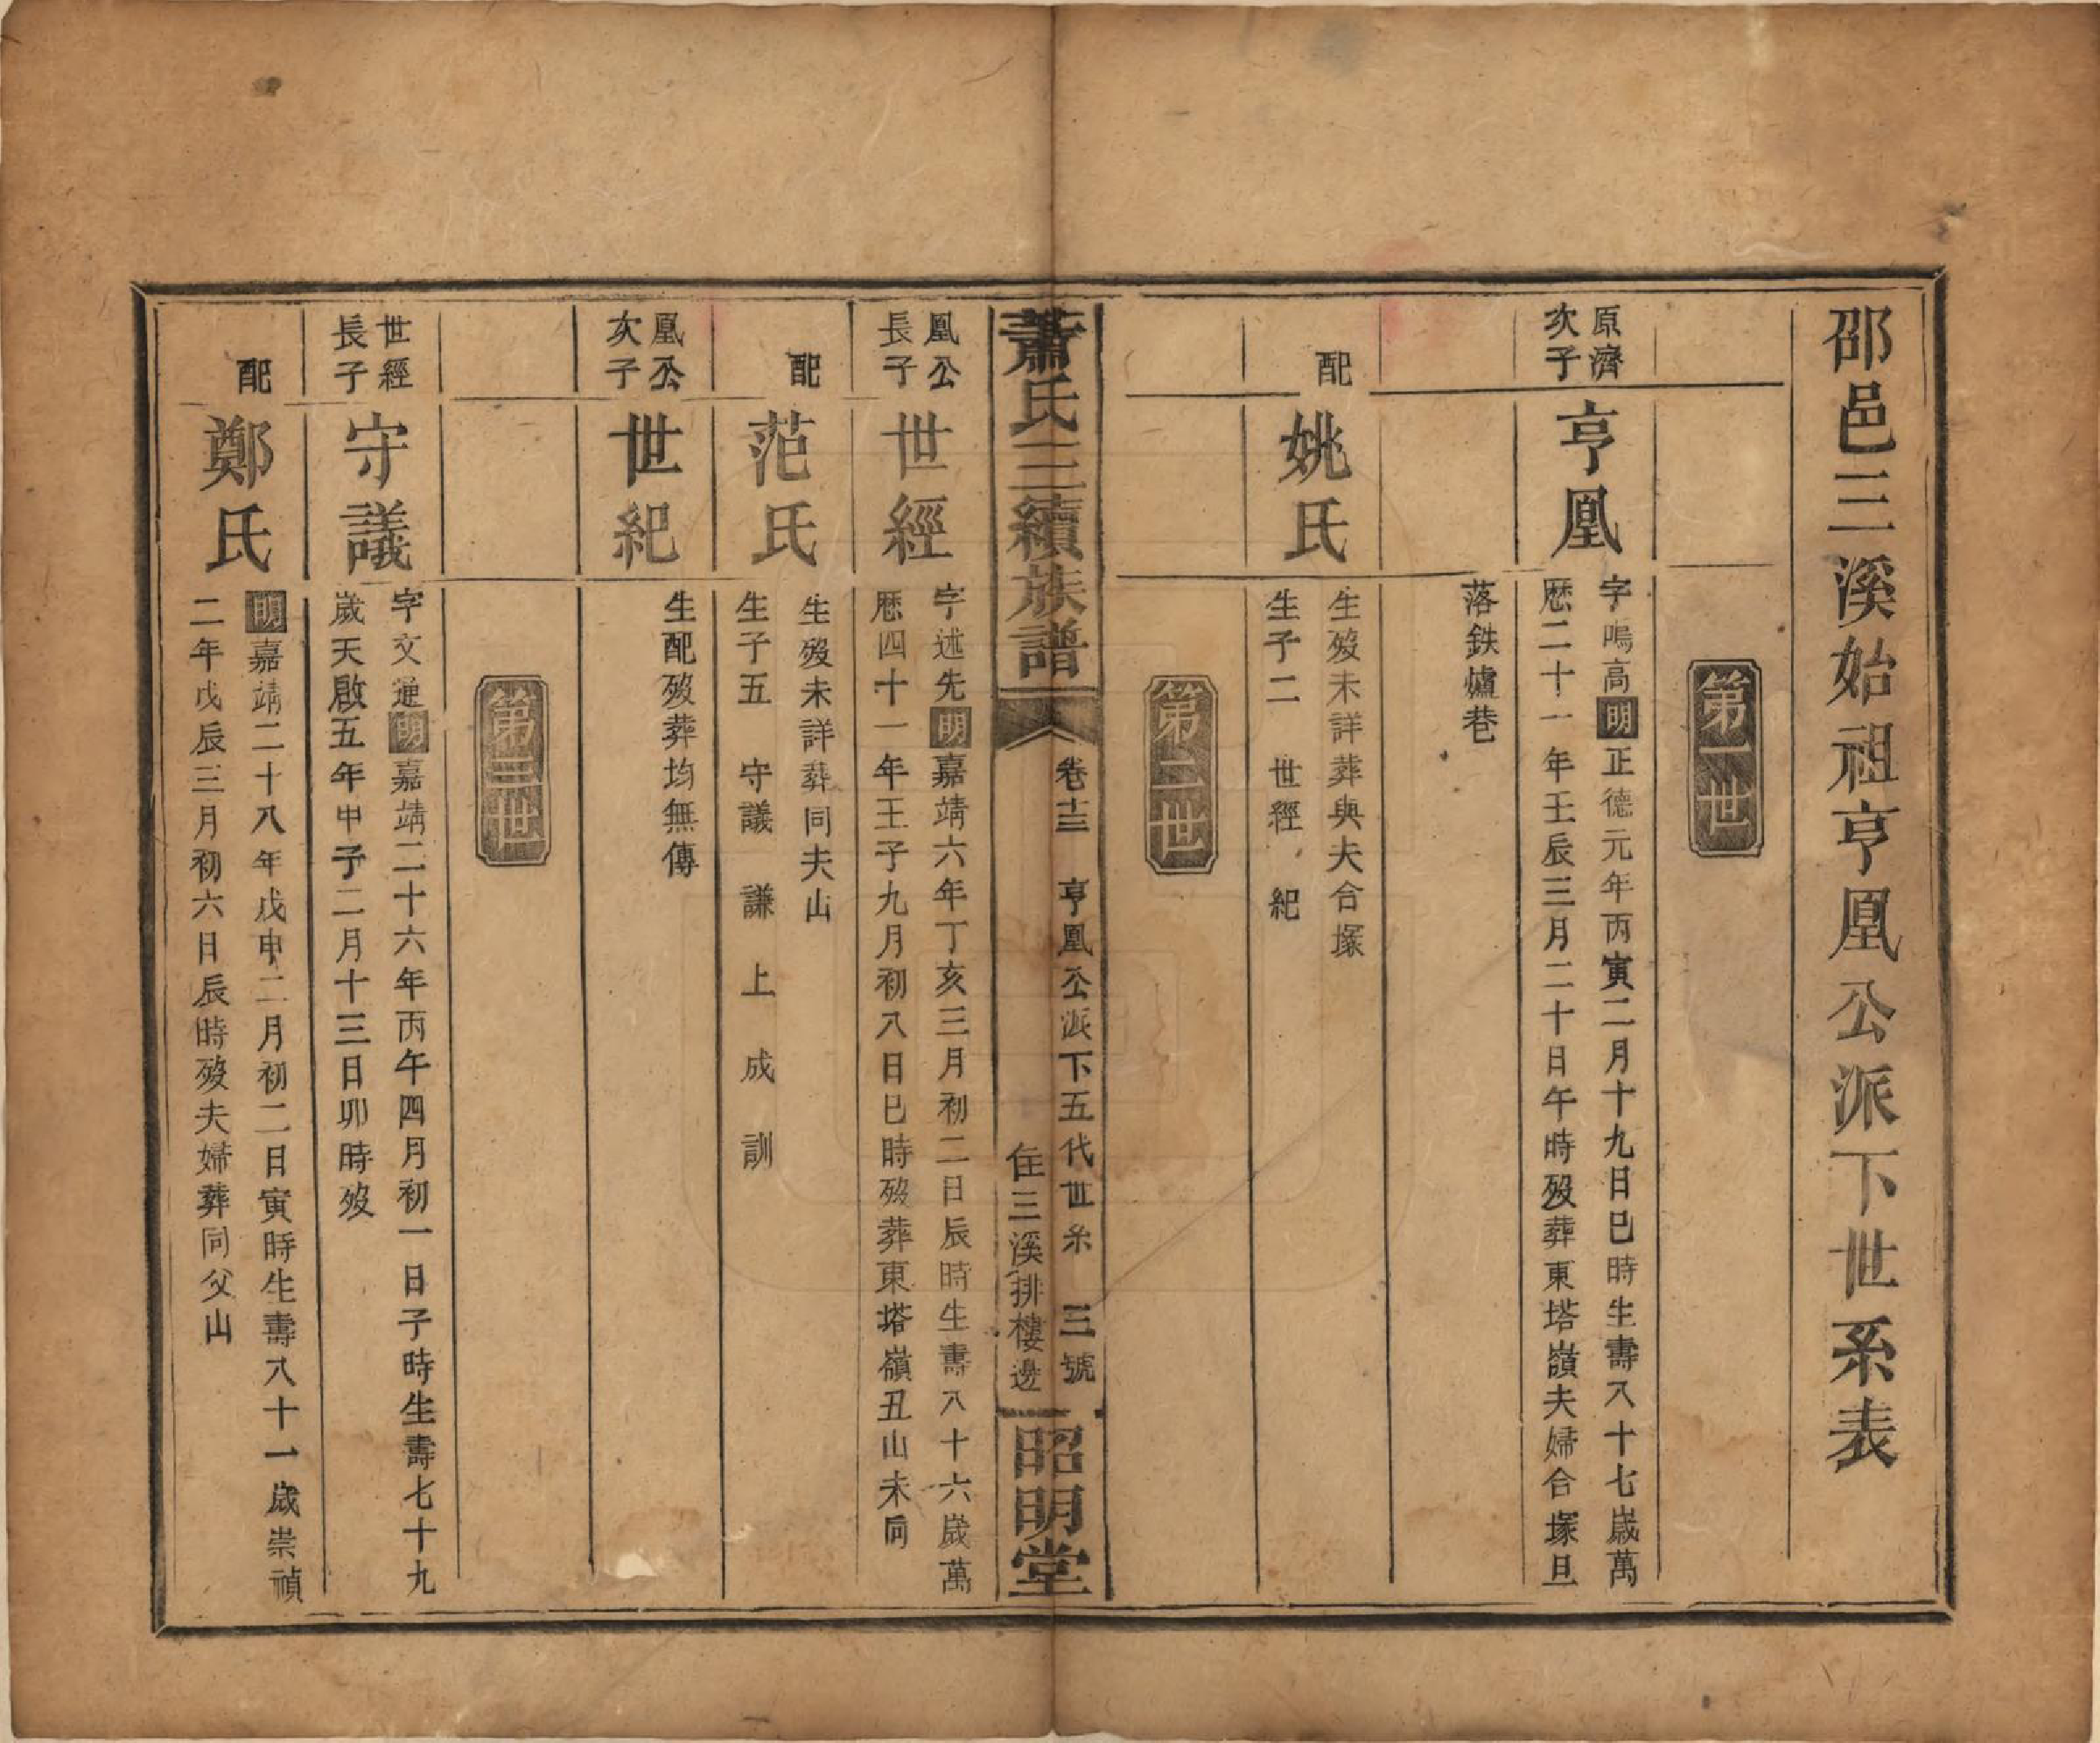 邵邑三溪始祖亨凰公派下世系表
第一世
原濟
次子
亨凰
字鳴高明正德元年丙寅二月十九日巳時生壽八十七歲萬
歷二十一年壬辰三月二十日午時歿葬東塔嶺夫婦合塚旦
落鉄爐巷
配
姚氏
生歿未詳葬與夫合塚
生子二 世經 紀
第二世
蕭氏三續族譜
卷十三 亨凰公派下五代世系 三號
住三溪排樓邊
昭明堂
凰公
長子
世經
字述先明嘉靖六年丁亥三月初二日辰時生壽八十六歲萬
歷四十一年壬子九月初八日巳時歿葬東塔嶺丑山未向
配
范氏
生歿未詳葬同夫山
生子五 守議 謙 上 成 訓
凰公
次子
世紀
生配歿葬均無傳
第三世
世經
長子
守議
字文運明嘉靖二十六年丙午四月初一日子時生壽七十九
歲天啟五年甲子二月十三日卯時歿
配
鄭氏
明嘉靖二十八年戊申二月初二日寅時生壽八十一歲崇禎
二年戊辰三月初六日辰時歿夫婦葬同父山